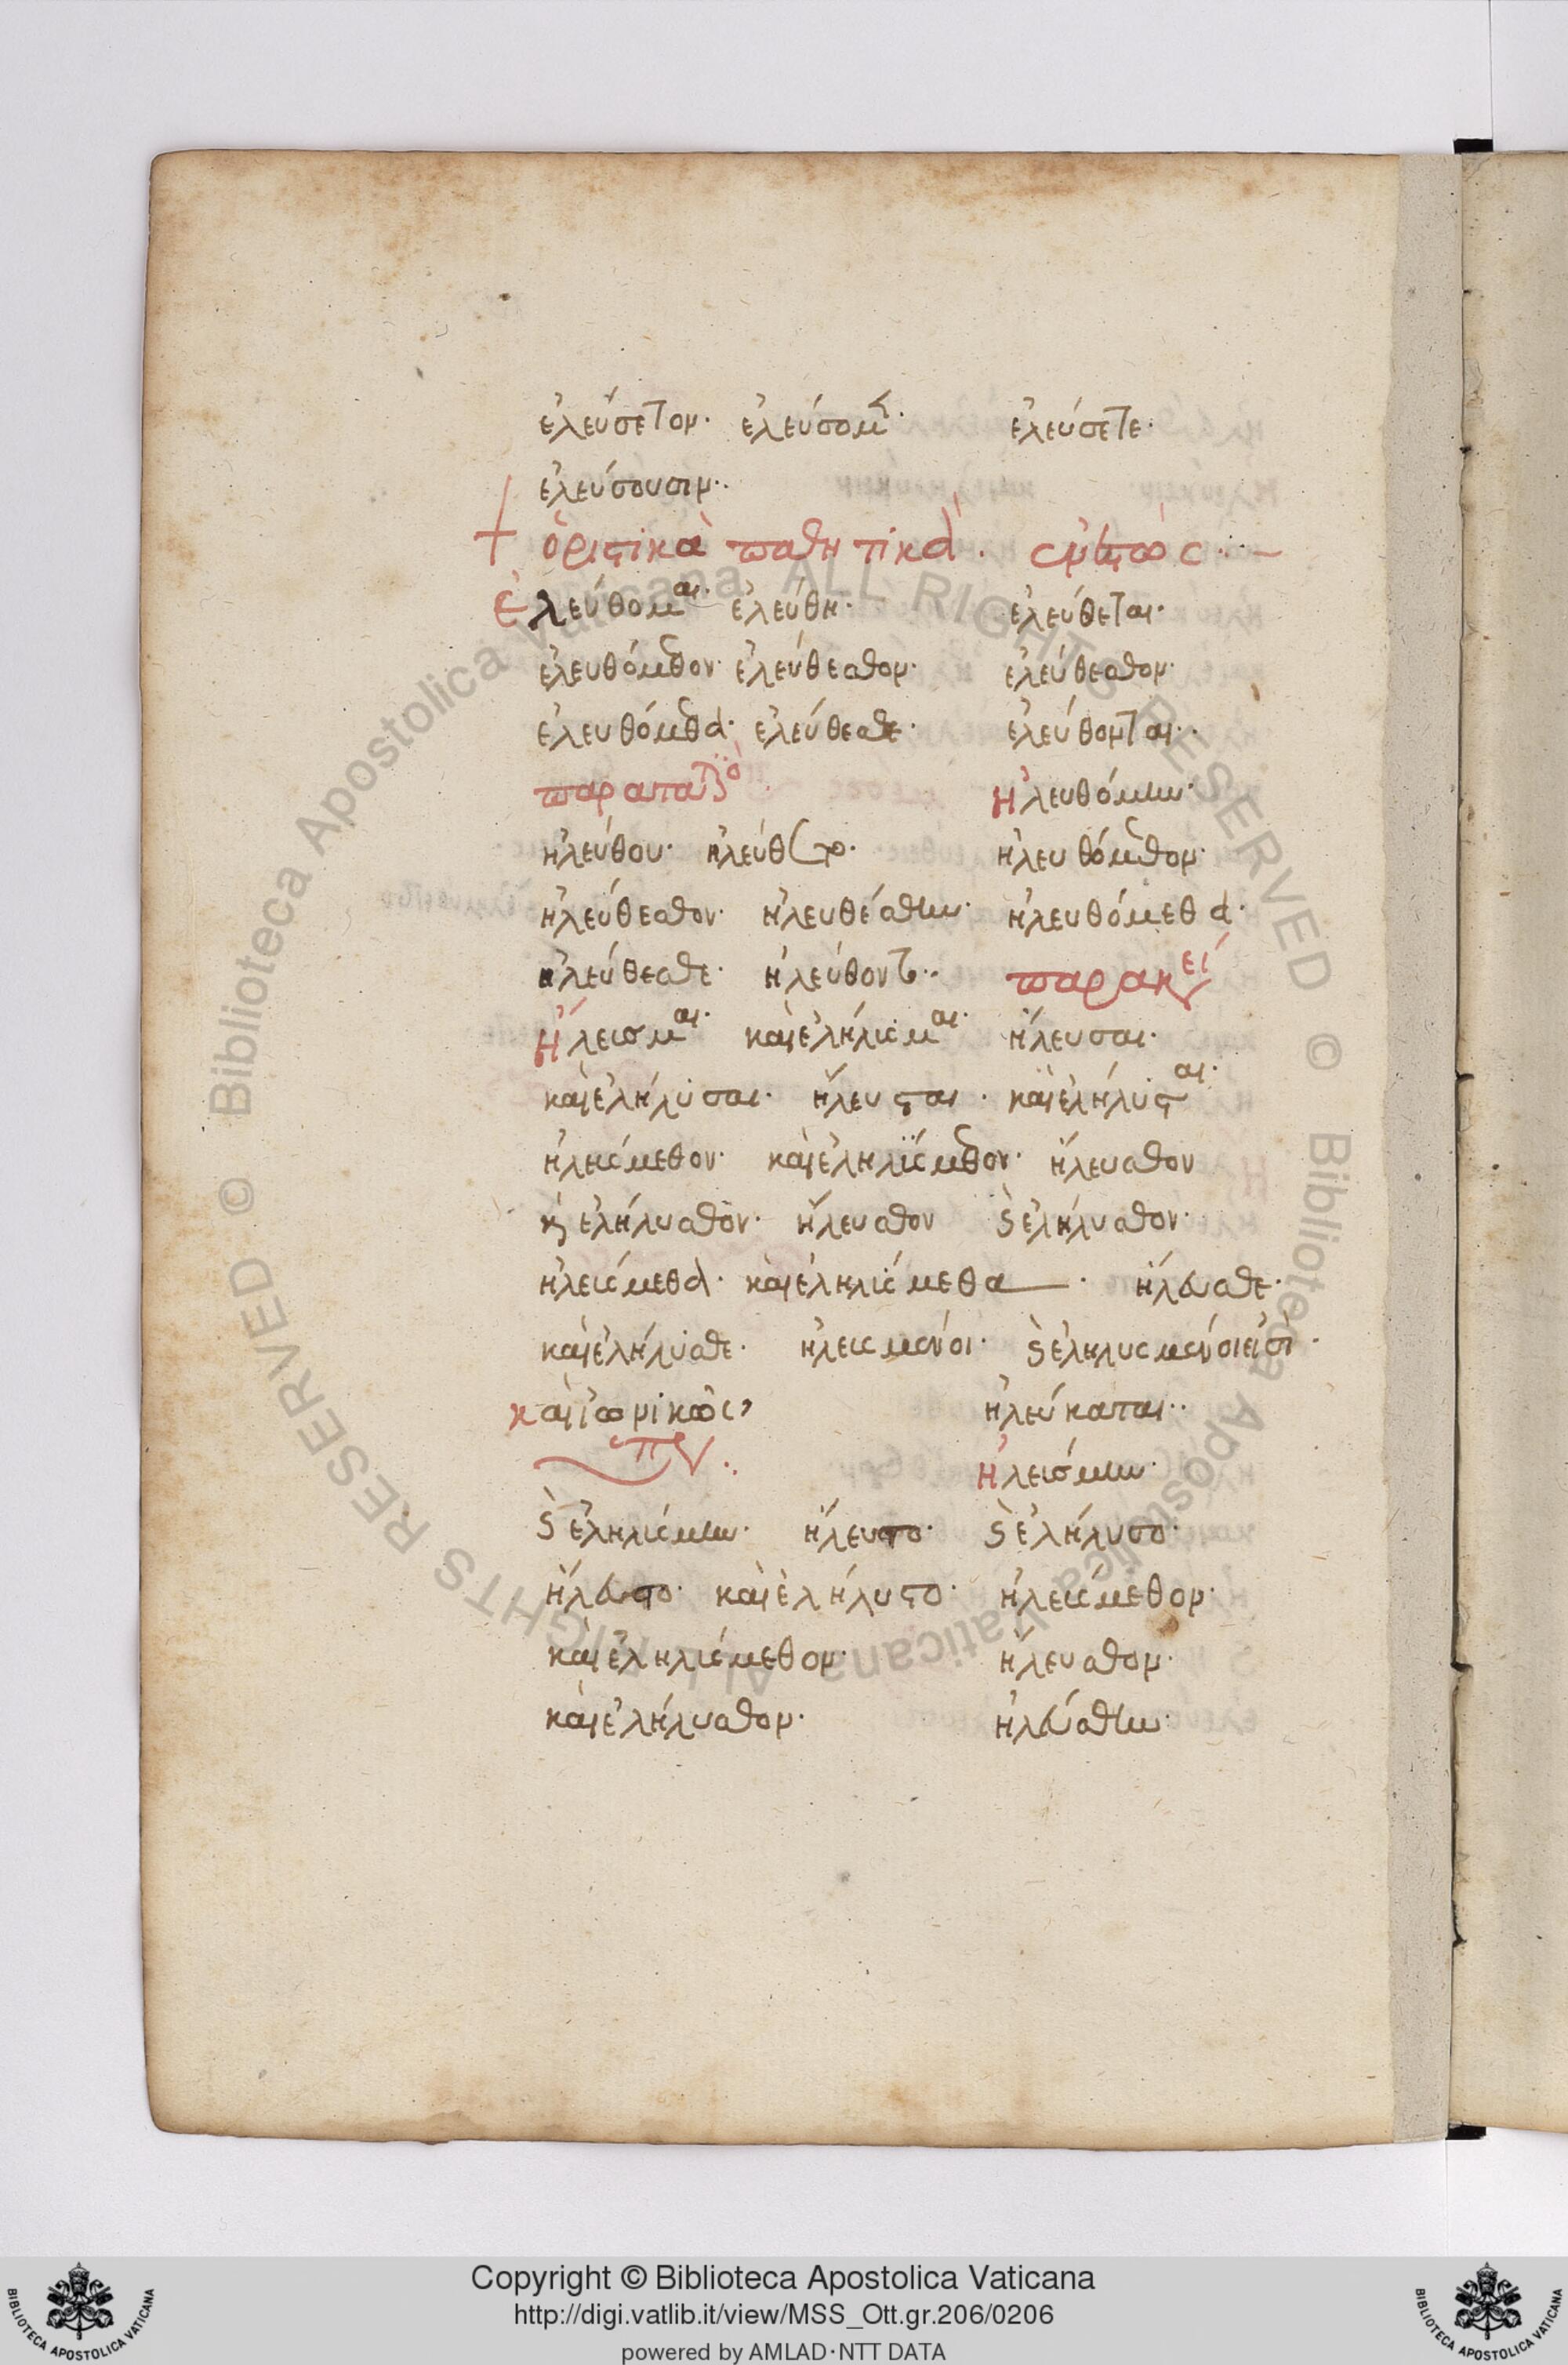 ἐλεύσετον· ἐλεύσομ(εν)· ἐλεύσετε·
ἐλεύσουσιν··
+ ὁριστικὰ παθητικά· ἐνεστὼς··—
Ἐλεύθομαι· ἐλεύθη· ἐλεύθεται·
ἐλευθόμεθον· ἐλεύθεσθον· ἐλεύθεσθον·
ἐλευθόμεθα· ἐλεύθεσθε· ἐλεύθονται··
παρατατικὸ Ἠλευθόμην·
ἠλεύθου· ἠλεύθετο· ἠλευθόμεθον·
ἠλεύθεσθον· ἠλευθέσθην· ἠλευθόμεθα·
ἠλεύθεσθε· ἠλεύθοντο·· παρακεί
Ἤλευσμαι· καὶ ἐλήλυσμαι· ἤλευσαι·
καὶ ἐλήλυσαι· ἤλευσται· καὶ ἐλήλυσται·
ἠλεύσμεθον· καὶ ἐληλύσμεθον· ἤλευσθον
κ(αὶ) ἐλήλυσθον· ἤλευσθον κ(αὶ) ἐλήλυσθον·
ἠλεύσμεθα· καὶ ἐληλύσμεθα· ἤλευσθε·
καὶ ἐλήλυσθε· ἠλευσμένοι· κ(αὶ) ἐληλυσμένοι εἰσὶ·
καὶ ἰωνικῶς, ἠλεύκαται··
ὑπερ·· Ἠλεύσμην·
κ(αὶ) ἐληλύσμην· ἤλευσο· κ(αὶ) ἐλήλυσο·
ἤλευστο· καὶ ἐλήλυστο· ἠλεύσμεθον·
καὶ ἐληλύσμεθον· ἤλευσθον·
καὶ ἐλήλυσθον· ἠλεύσθην·
Copyright © Biblioteca Apostolica Vaticana
http://digi.vatlib.it/view/MSS_Ott.gr.206/0206
powered by AMLAD·NTT DATA
BIBLIOTECA APOSTOLICA VATICANA
BIBLIOTECA APOSTOLICA VATICANA
Biblioteca Apostolica Vaticana ALL RIGHTS RESERVED ©
Biblioteca Apostolica Vaticana ALL RIGHTS RESERVED ©